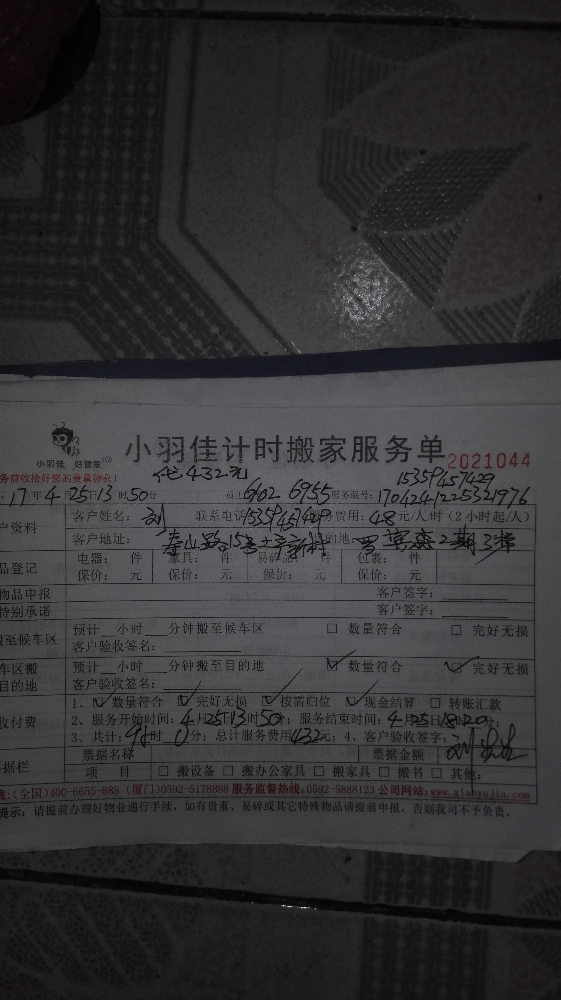 小羽佳 好管家
小羽佳计时搬家服务单
2021044
代432元
15359457429
17年4月25日13时50分 员工 6402 6955 服务联号: 1704241225321976
户资料 客户姓名: 刘 联系电话 15359457429 服务费用: 48元/人/时(2小时起/人)
客户地址: 寿山路15 的地: 2期3栋
品登记 电器: 件 家具: 件 易碎品: 件 包裹: 件
保价: 元 保价: 元 保价: 元 保价: 元
物品申报 客户签字:
特别承诺 客户签字:
搬至候车区 预计 小时 分钟搬至候车区 □ 数量符合 □ 完好无损
客户验收签名:
车区搬 预计 小时 分钟搬至目的地 ☑ 数量符合 ☑ 完好无损
目的地 客户验收签名:
1、☑数量符合 ☑完好无损 ☑按需归位 ☑现金结算 □ 转账汇款
收付费 2、服务开始时间: 4月25日13时50分; 服务结束时间: 4月25日18时20分;
3、共计: 9时0分; 总计服务费用432元; 4、客户签字:
据栏 票据名称 票据金额
项 目 □ 搬设备 □ 搬办公家具 □ 搬家具 □ 搬书 □ 其他:
线:(全国)400-6655-888 (厦门)0592-5178888 服务监督热线:0592-5888123 公司网站:www.xiaoyujia.com
提示: 请提前办理好物业通行手续, 如有贵重、易碎或其它特殊物品请提前申报, 否则我司不予负责。